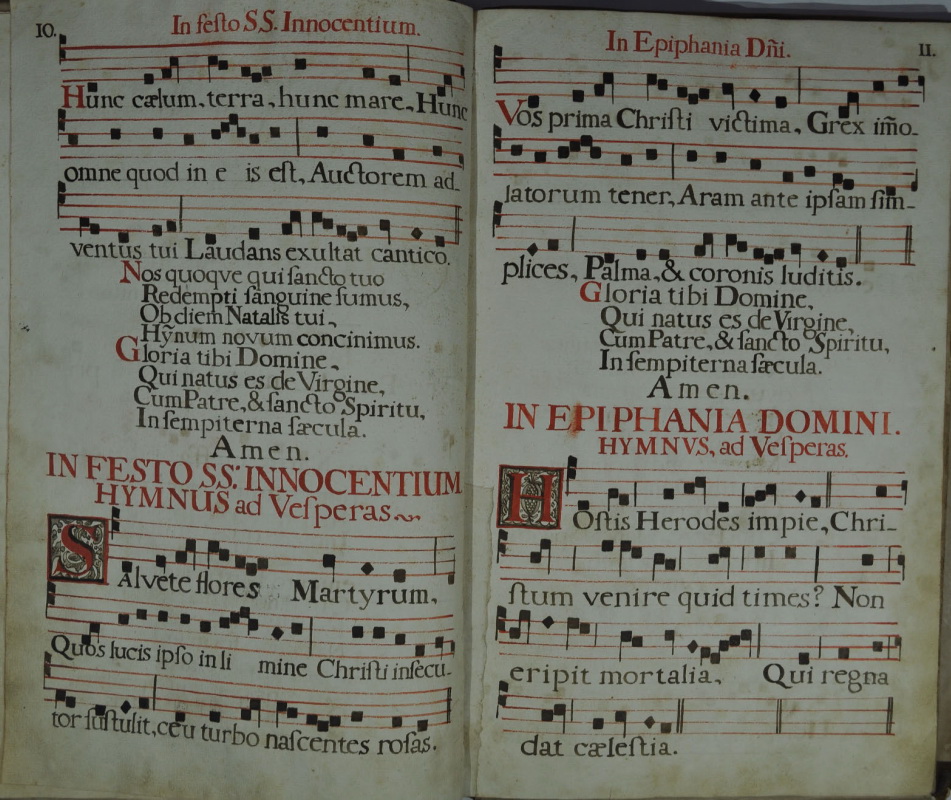 10.
In feſto S.S. Innocentium.
Hunc cælum, terra, hunc mare, Hunc
omne quod in e is eſt, Auctorem ad-
ventus tui Laudans exultat cantico.
Nos quoqve qui ſancto tuo
Redempti ſanguine ſumus,
Ob diem Natalis tui,
Hỹnum novum concinimus.
Gloria tibi Domine,
Qui natus es de Virgine,
Cum Patre, & ſancto Spiritu,
In ſempiterna ſæcula.
Amen.
IN FESTO SS. INNOCENTIUM
HYMNUS ad Veſperas
SAlvete flores Martyrum,
Quos lucis ipſo in li mine Chriſti inſecu-
tor ſuſtulit, ceu turbo naſcentes roſas.
In Epiphania Dñi.
11.
Vos prima Chriſti victima, Grex im̃o-
latorum tener, Aram ante ipſam ſim-
plices, Palma, & coronis luditis.
Gloria tibi Domine,
Qui natus es de Virgine,
Cum Patre, & ſancto Spiritu,
In ſempiterna ſæcula.
Amen.
IN EPIPHANIA DOMINI.
HYMNVS, ad Veſperas.
HOſtis Herodes impie, Chri-
ſtum venire quid times? Non
eripit mortalia, Qui regna
dat cæleſtia.